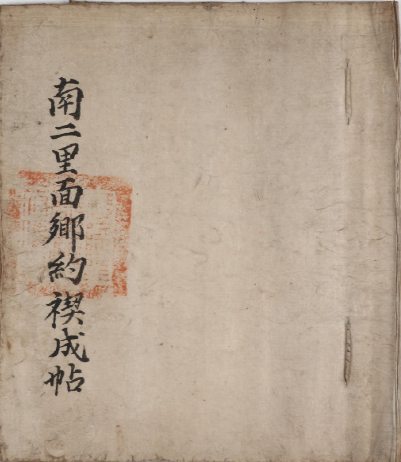 南二里面鄉約禊成帖